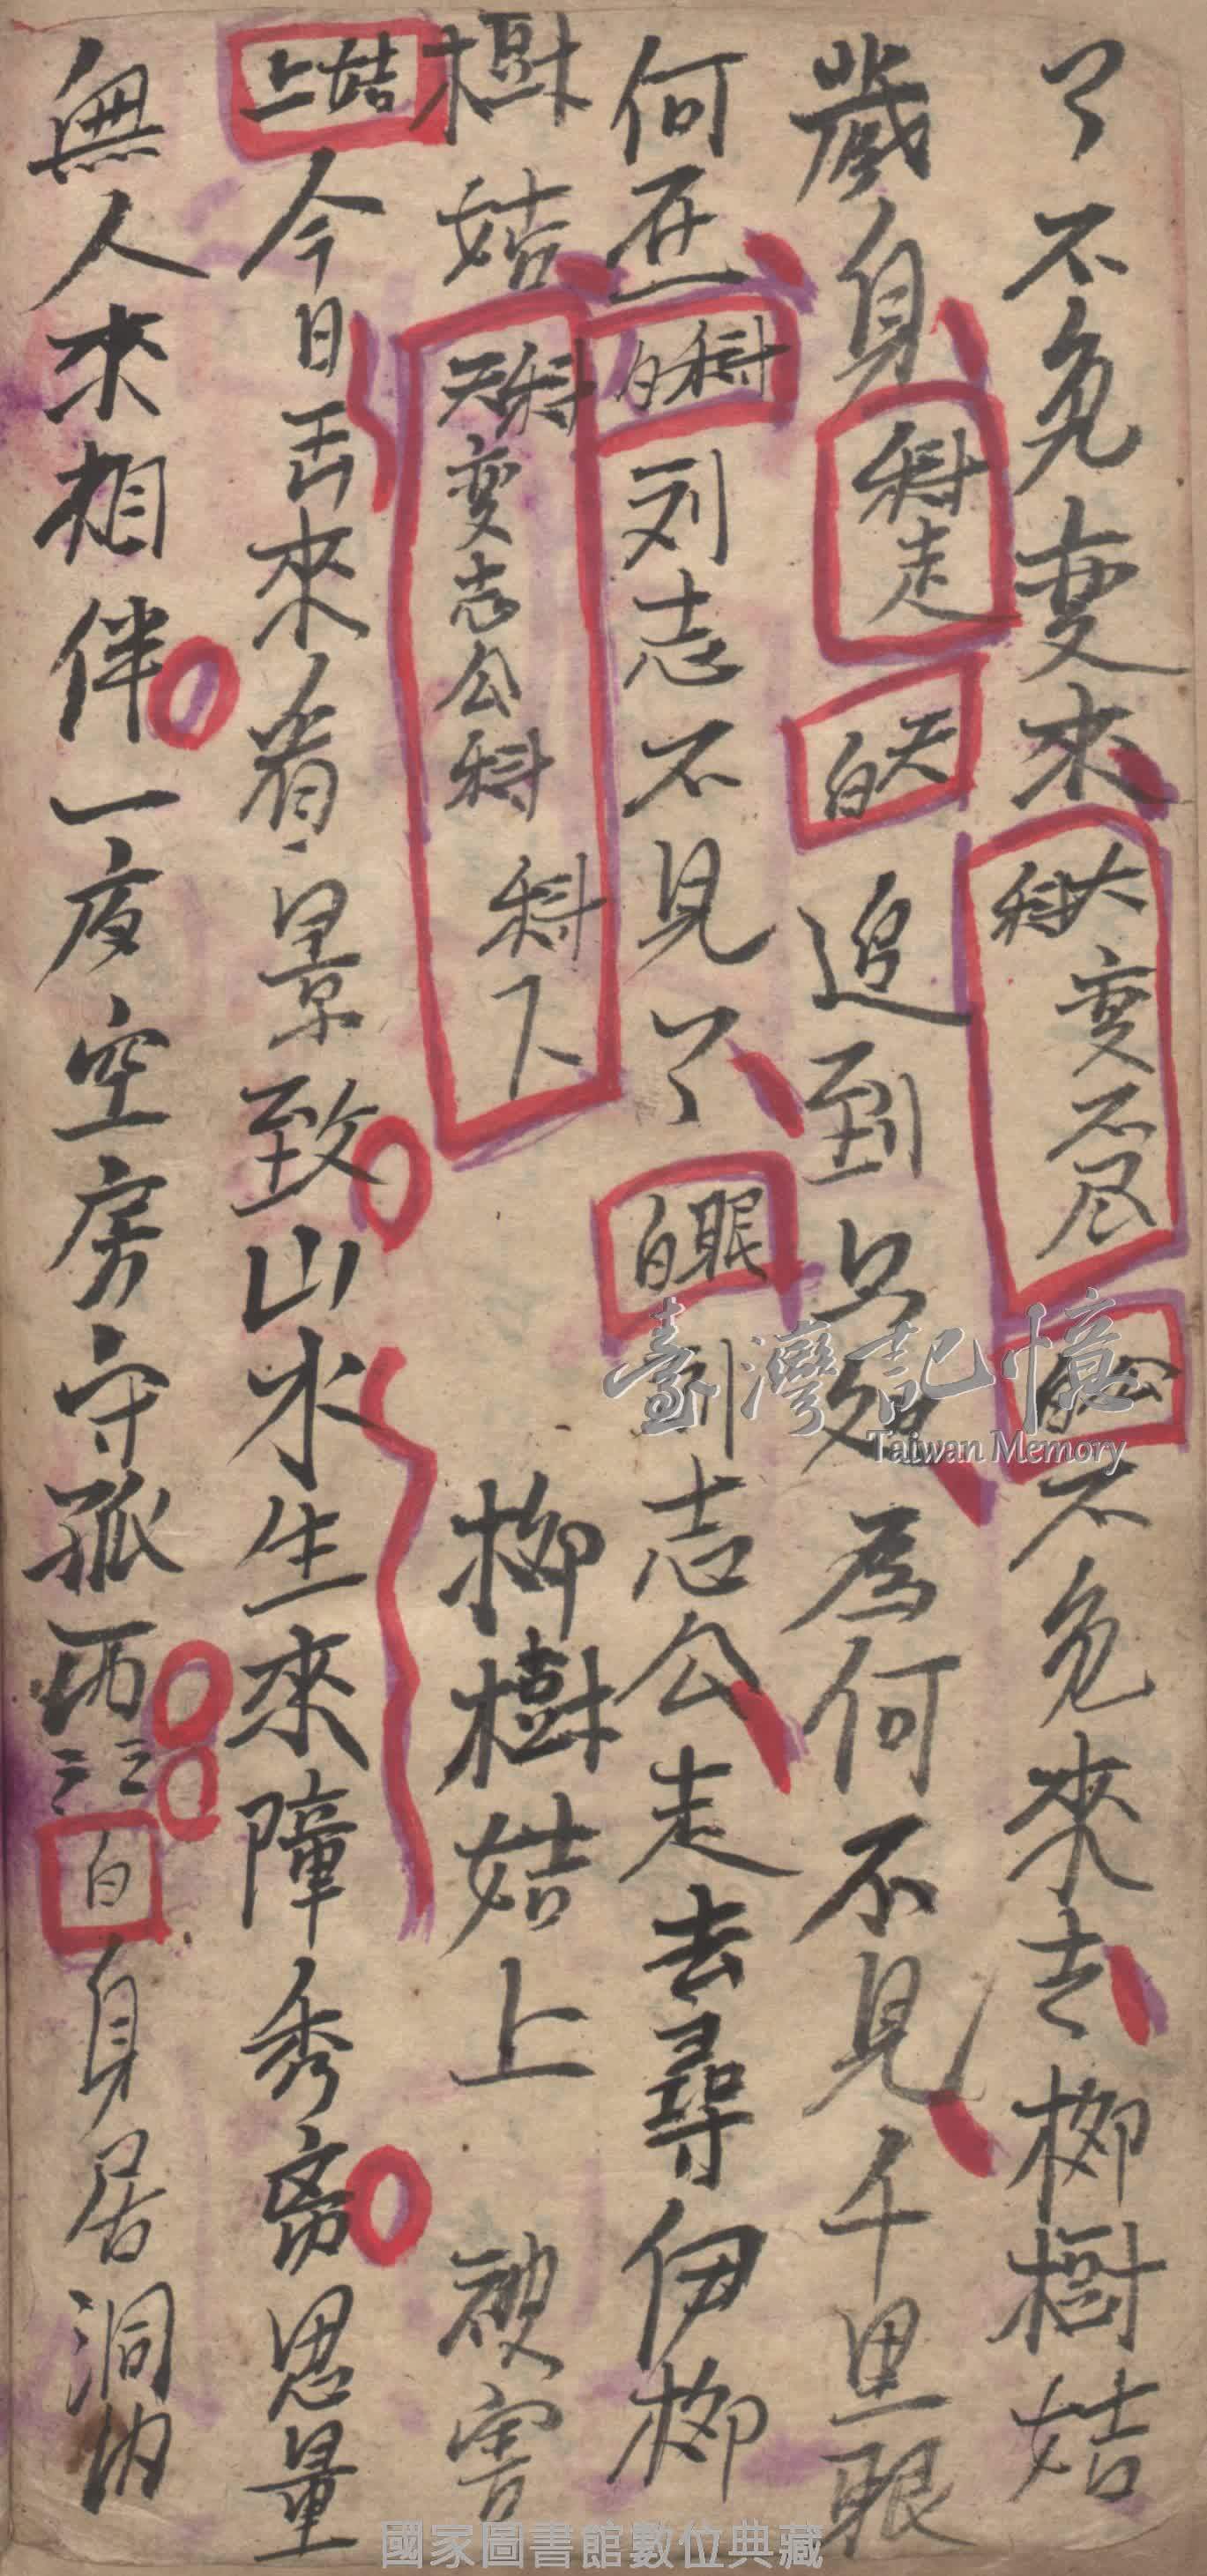 了不免变来大科变不尽公白不免來去柳樹姑
歲身科走天白追到只處為何不見千里眼
何在科白刘志不見了眼白刘志公走去尋伊柳
樹姑天科变志公科科下柳樹姑上被害
姑上今日古來看景致山水生來障秀离思量
無人來相伴一夜空房守孤栖三三白身居洞内
臺灣記憶
Taiwan Memory
國家圖書館數位典藏